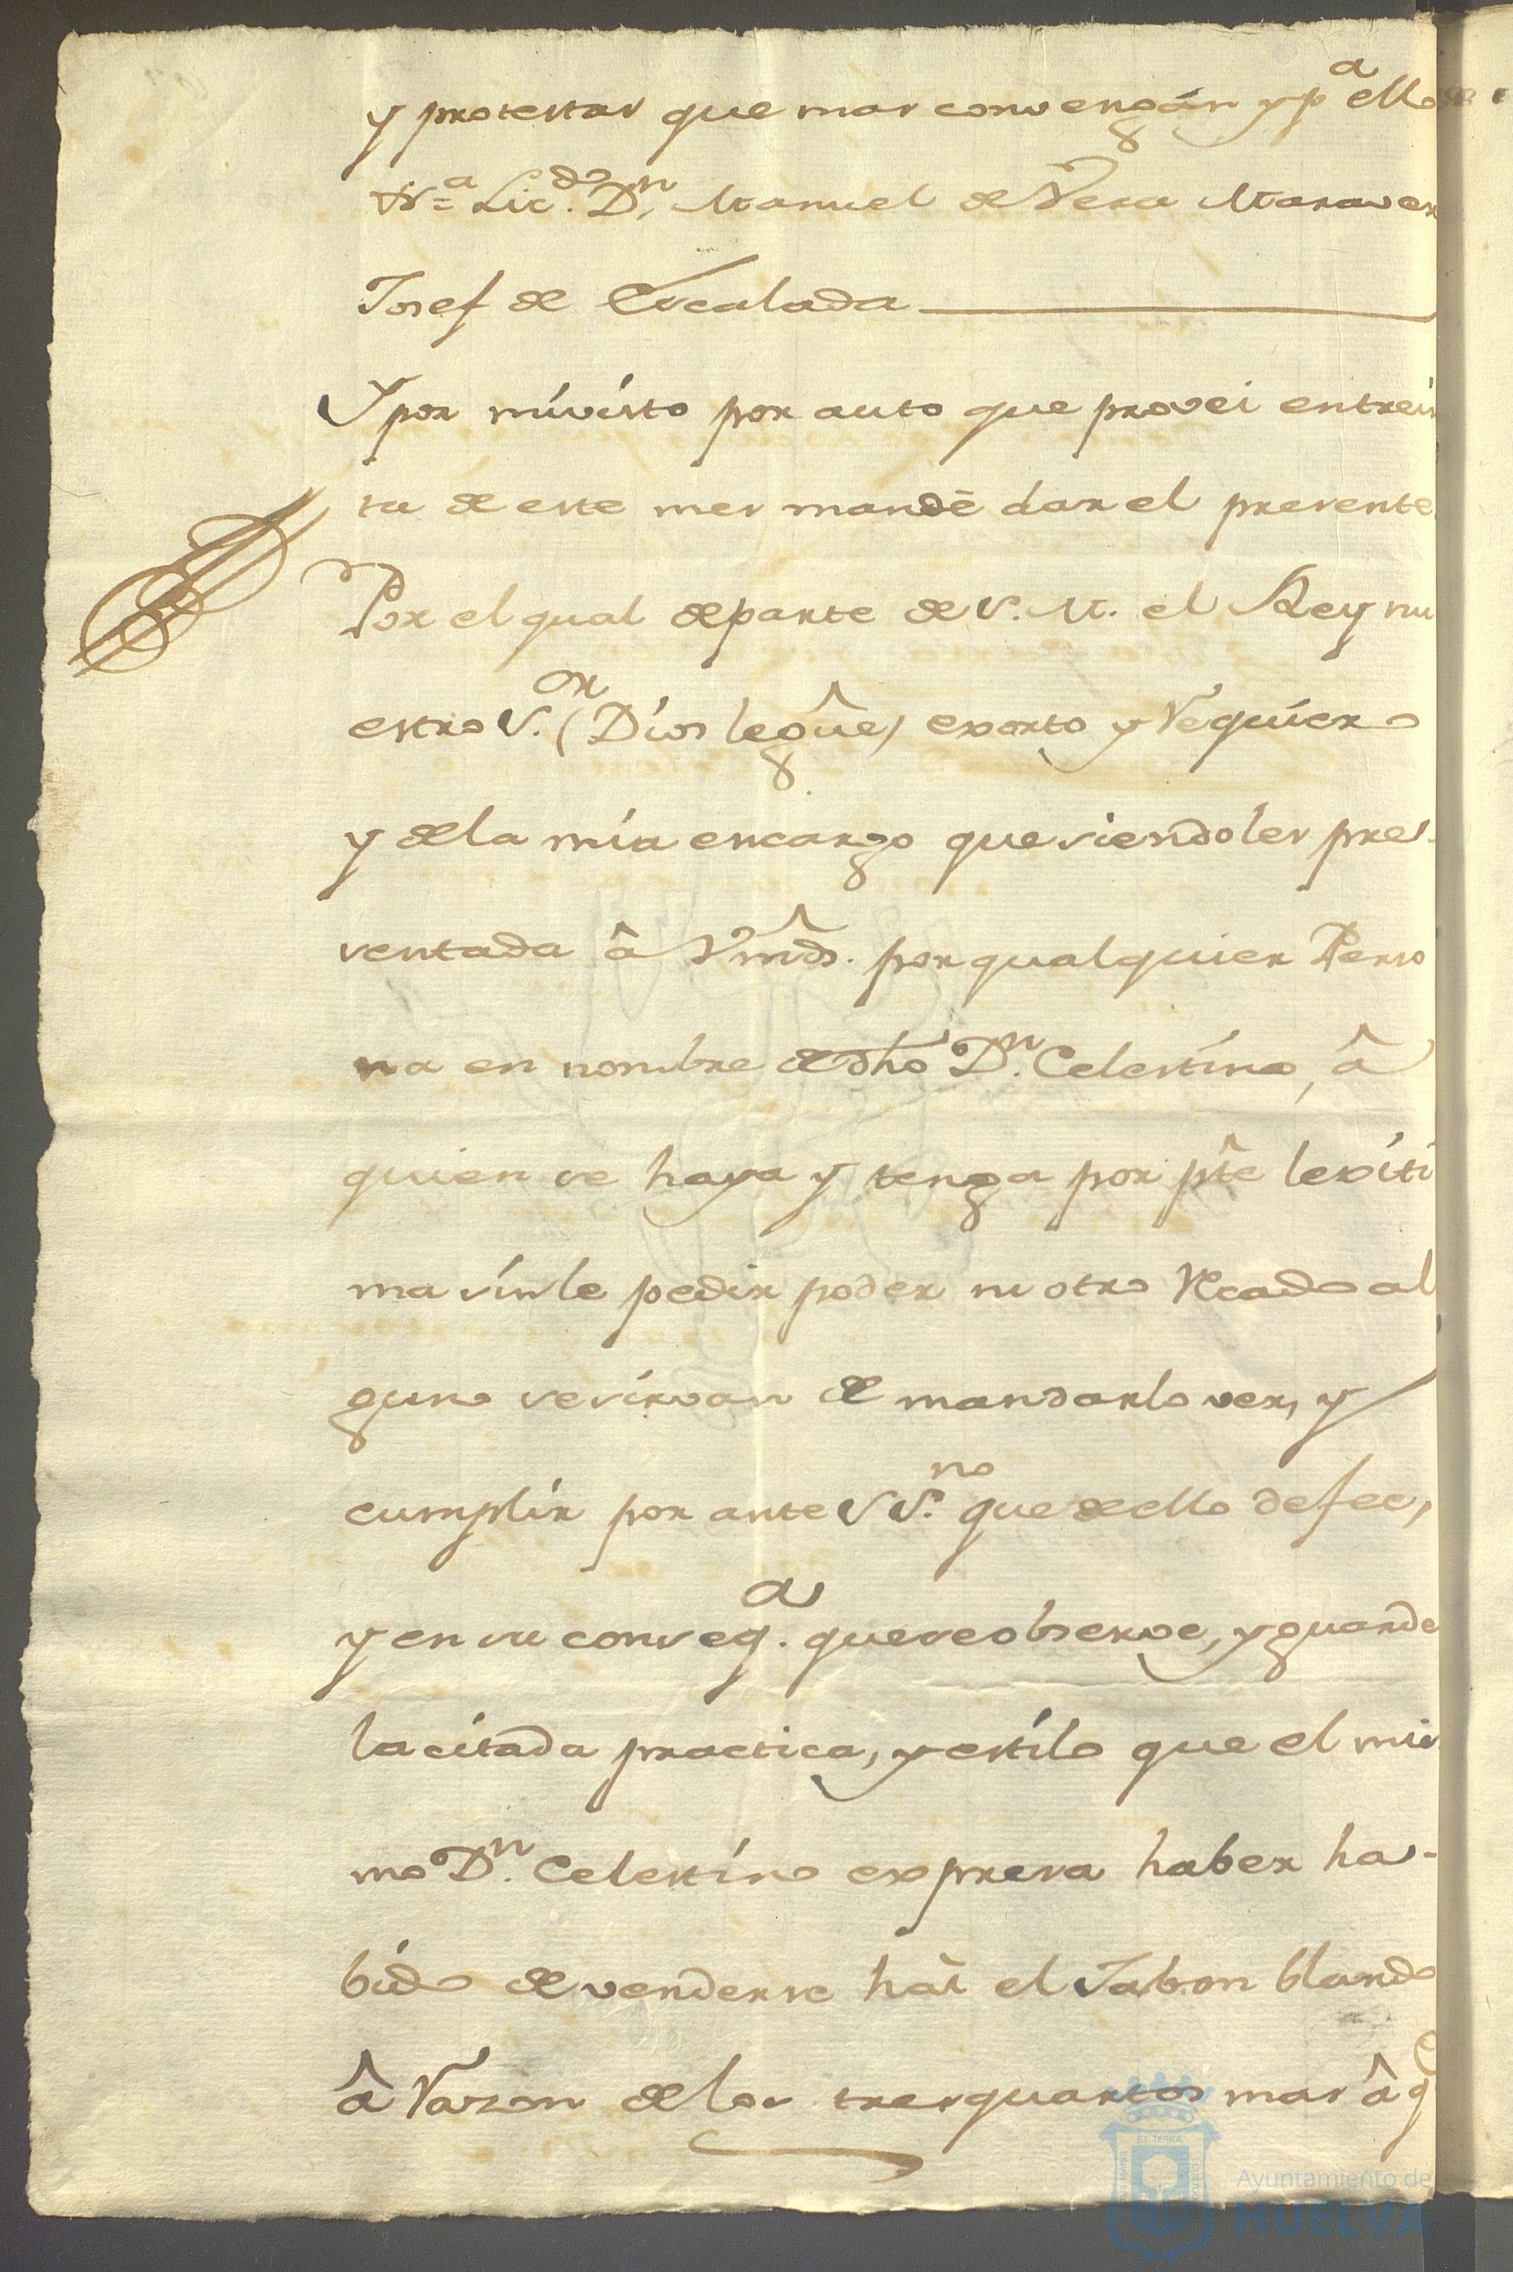 y protestas que mas convengan y p.ª ello
Lic.do D.n Manuel de Vera Maraver
Josef de Escalada
Y por mi visto por auto que provei en trein
ta de este mes mandè dar el presente
Por el qual de parte de S. M. el Rey nu
estro S.or (Dios le gûe) exorto y requiero
y de la mia encargo que siendoles pre-
sentada â Vmds. por qualquier Perso
na en nombre de dho D.n Celestino, â
quien se haya y tenga por pte lexiti
ma sin le pedir poder ni otro recado al
guno se sirvan de mandarlo ver, y
cumplir por ante SS.no que de ello de fee,
y en su conseq.a que se observe, y guarde
la citada practica, y estilo que el mis
mo D.n Celestino expresa haber ha-
bido de venderse hai el Jabon blando
â razon de los tres quartos mas â q
ET TERRÆ
Ayuntamiento de
HUELVA